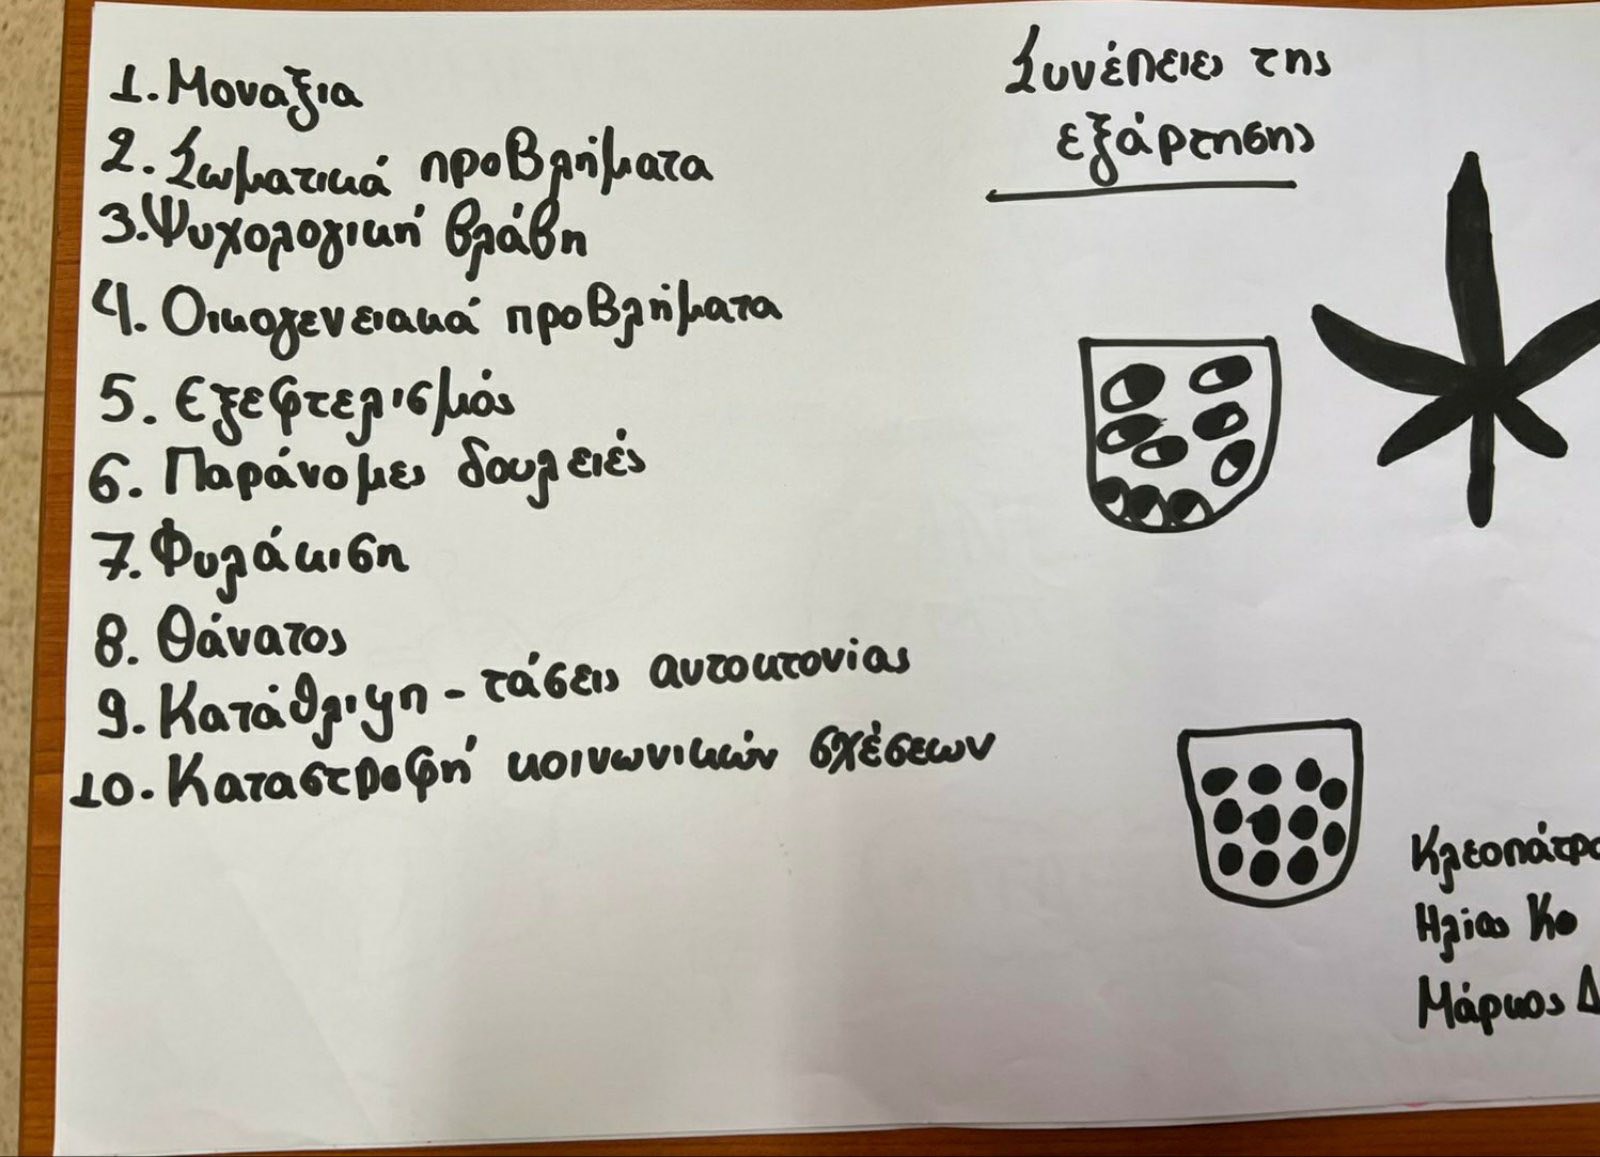 Συνέπειες της
εξάρτησης
1. Μοναξια
2. Σωματικά προβλήματα
3. Ψυχολογική βλάβη
4. Οικογενειακά προβλήματα
5. Εξεφτελισμός
6. Παράνομες δουλειές
7. Φυλάκιση
8. Θάνατος
9. Κατάθλιψη - τάσεις αυτοκτονίας
10. Καταστροφή κοινωνικών σχέσεων
Κλεοπάτρα
Ηλίας Κο
Μάρκος Δ